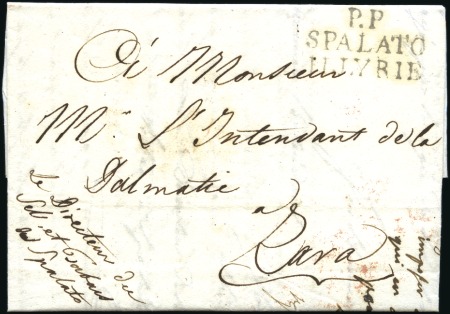 P.P
SPALATO
ILLYRIE
À Monsieur
Mr. L'Intendant de la
Dalmatie
a
Zara
Le Directeur du
Sel et Tabacs
a Spalato